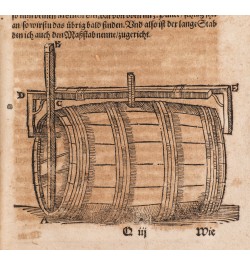 an so wirstu das übrig bald finden. Und also ist der lange Stab
den ich auch den Maßstab nenne/zugericht.
B
D
C
A
Q iij
Wie